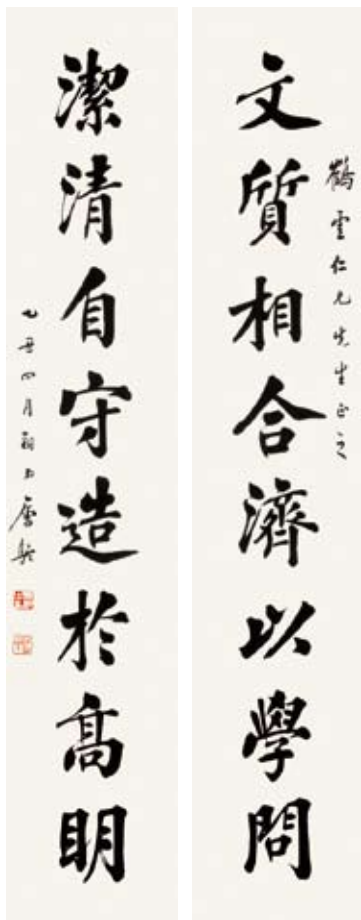 鶴雲仁兄先生正之
文質相合濟以學問
潔清自守造於高明
乙丑四月